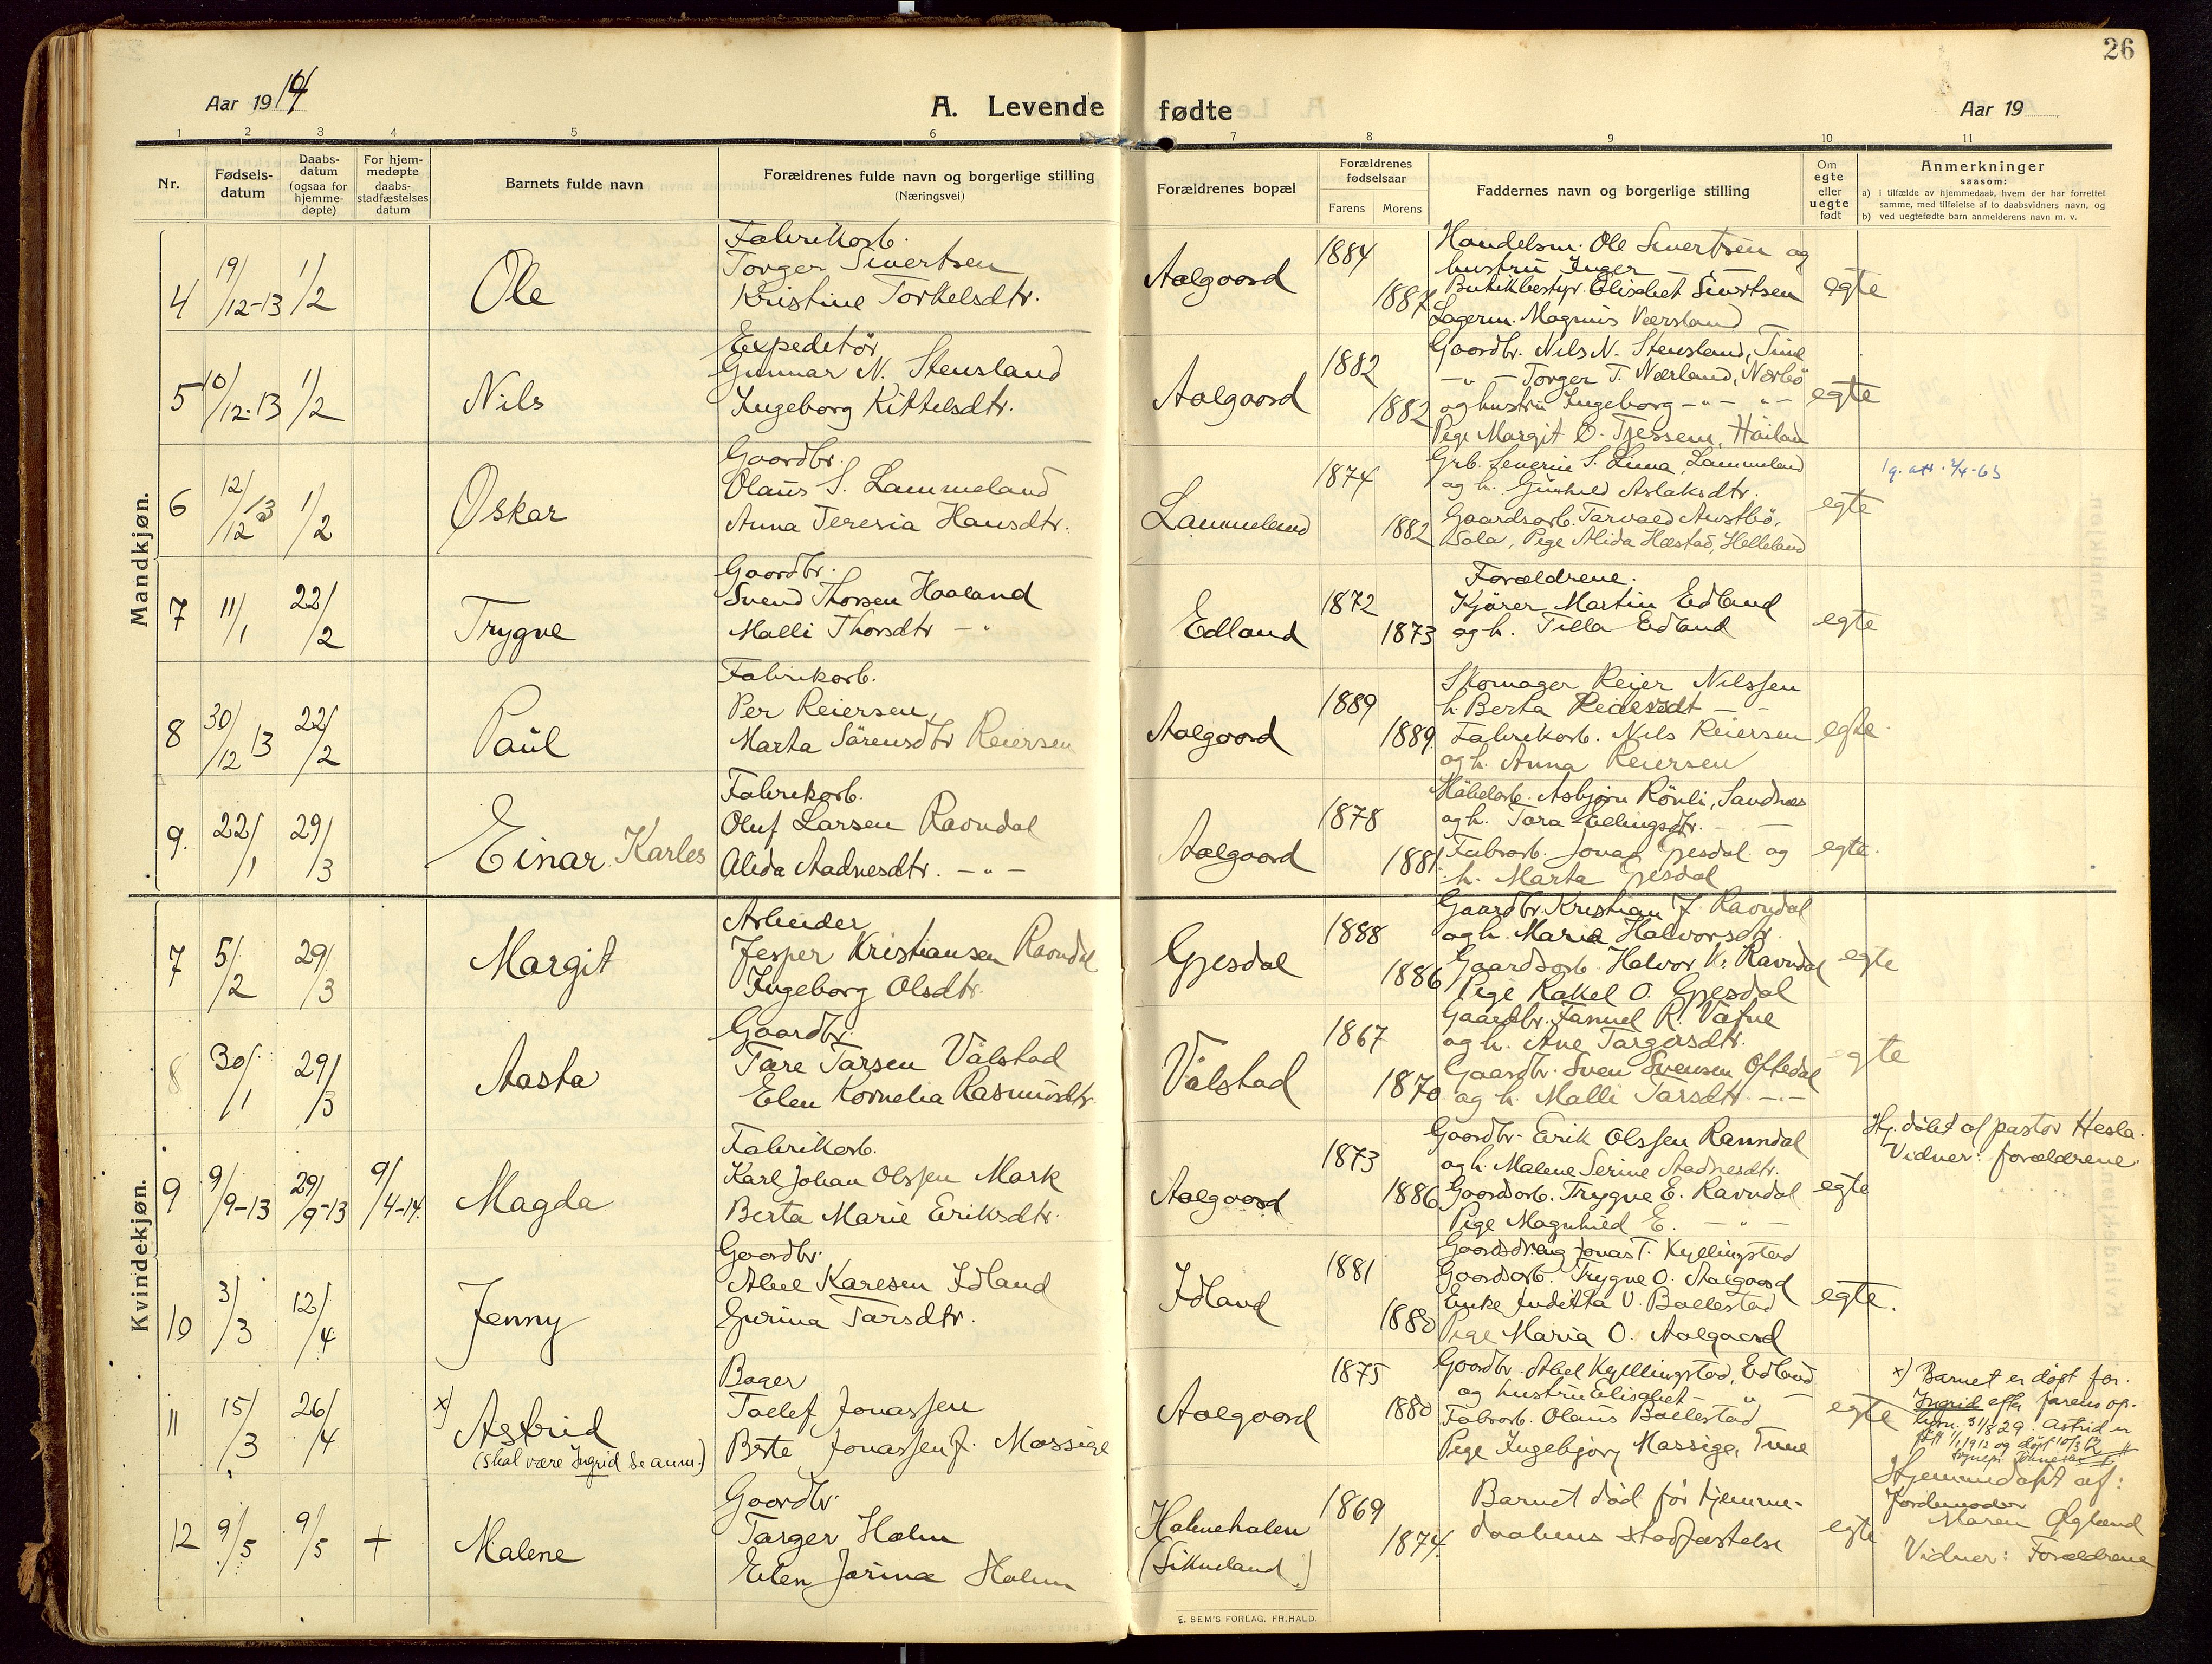 26
Aar 1914
A. Levende fødte
Aar 19
1 2 3 4 5 6 7 8 9 10 11
Nr.
Fødsels-
datum
Daabs-
datum
(ogsaa for
hjemme-
døpte)
For hjem-
medøpte
daabs-
stadfæstelses
datum
Barnets fulde navn
Forældrenes fulde navn og borgerlige stilling
(Næringsvei)
Forældrenes bopæl
Forældrenes
fødselsaar
Farens Morens
Faddernes navn og borgerlige stilling
Om
egte
eller
uegte
født
Anmerkninger
saasom:
a) i tilfælde av hjemmedaab, hvem der har forrettet
samme, med tilføielse af to daabsvidners navn, og
b) ved uegtefødte barn anmelderens navn m. v.
Mandkjøn.
4 19/12-13 1/2 Ole
Fabrikarb.
Torger Sivertsen
Kristine Torkelsdtr.
Aalgaard 1884 1887
Handelsm. Ole Sivertsen og
hustru Inger
Butikbestyr. Elisabet Sivertsen
Lagerm. Magnus Værsland
egte
5 10/12-13 1/2 Nils
Expeditør
Gunnar N. Stensland
Ingeborg Kittelsdtr.
Aalgaard 1882 1882
Gaardbr. Nils N. Stensland, Time
-"- Torger T. Nærland, Nærbö
og hustru Ingeborg -"- "-
Pige Margit O. Tjessem,
egte
6 12/12 13 1/2 Oskar
Gaardbr.
Olaus S. Lammeland
Anna Teresia Hansdtr.
Lammeland 1874 1882
Grb. Severin S. Lima, Lammeland
og h. Gunhild Aslaksdtr.
Gaardsarb. Tarvald Austbö,
Sola, Pige Alida Hæstad, Helleland
egte
7 11/1 22/2 Trygve
Gaardbr.
Svend Thorsen Haaland
Malli Thorsdtr -"-
Edland 1872 1873
Forældrene.
Kjörer Martin Edland
og h. Tilla Edland
egte
8 30/12 13 22/2 Paul
Fabrikarb.
Per Reiersen
Marta Sörensdtr Reiersen
Aalgaard 1889 1889
Skomager Reier Nilssen
h. Berta
Fabrikarb. Nils Reiersen
og h. Anna Reiersen
egte
9. 22/1 29/3 Einar Karles
Fabrikarb.
Oluf Larsen Ravndal
Alida Aadnesdtr. -"-
Aalgaard 1878 1881
Möbelarb. Asbjørn Rönli, Sandnæs
og h. Tara Ellingsdtr.
Fabrarb. Jonas Gjesdal og
h. Marta Gjesdal
egte.
Kvindekjøn.
7 5/2 29/3 Margit
Arbeider
Jesper Kristiansen Ravndal
Ingeborg Olsdtr.
Gjesdal 1888 1886
Gaardbr. Kristian J. Ravndal
og h. Maria Halvorsdtr.
Gaardsarb. Halvor K. Ravndal
Pige Rakel O. Gjesdal
egte
8 30/1 29/3 Aasta
Gaardbr.
Tare Tarsen Válstad
Elen Kornelia Rasmusdtr.
Válstad 1867 1870
Gaardbr. R.
og h. Ane Targersdtr.
Gaardbr. Sven Svensen Oftedal
og h. Malli Tarsdtr. -"-
egte
9 9/9-13 29/9-13 9/4-14. Magda
Fabrikarb.
Karl Johan Olssen Mark
Berta Marie Eriksdtr.
Aalgaard 1873 1886
Gaardbr. Erik Olssen Ravndal
og h. Malene Serine Aadnesdtr.
Gaardsarb. Trygve E. Ravndal
Pige Magnhild E. -"-
egte
Hj. döbt af pastor Hesla.
Vidner: forældrene.
10 3/3 12/4 Jenny
Gaardbr.
Abel Karesen Idland
Gurina Tarsdtr.
Idland 1881 1880
Gaardsdreng Jonas T. Kyllingstad
Gaardsarb. Trygve O. Aalgaard
Enke Juditta O. Bollestad
Pige Maria O. Aalgaard
egte.
11 15/3 26/4 x) Astrid
(skal være Ingrid se anm.)
Bager
Tollef Jonassen
Berte Jonassen f. Mossige
Aalgaard 1875 1880
Gaardbr. Abel Kyllingstad, Edland
og hustru Elisabet -"-
Fabrarb. Olaus Bollestad
Pige Ingebjorg Mossige, Time
egte
x) Barnet er døpt for.
Ingrid efter farens op-
lysn. 31/8 29. Astrid er
født 1/1 1912 og døpt 10/3 12
12 9/5 9/5 + Malene
Gaardbr.
Targer Holm
Elen Jorina Holm
Holmehalen
(Sikveland) 1869 1874
Barnet død før hjemme-
daabens stadfæstelse
egte
Hjemmedøpt af:
Jordmoder
Maren Øglænd
Vidner: Forældrene
E. SEM'S FORLAG. FR.HALD.